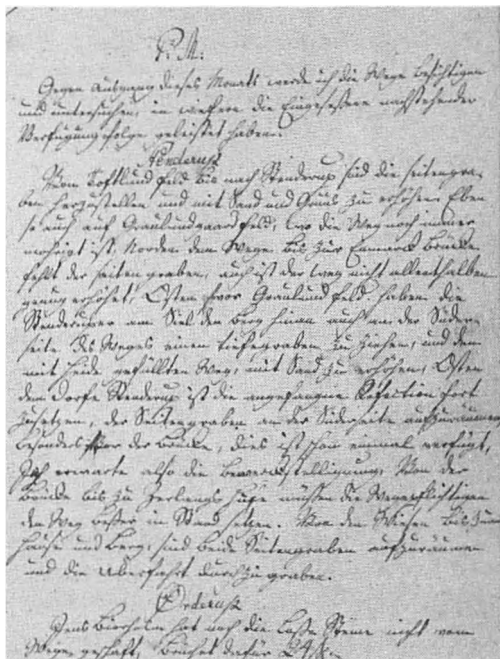 P. M.
Gegen Ausgang dieses Monats werde ich die Wege besichtigen
und untersuchen, in wiefern die Eingesessene nachstehender
Verfügung folge geleistet haben.
Stenderup
Vom Toftlund Feld bis nach Stenderup sind die seitengra-
ben herzustellen und mit Sand und Grus zu erhöhen. Eben
so auch auf Graulundgaard feld, wo die Weg noch immer
morigt ist. Norden dem Wege bis zur brücke
fehlt der seiten graben, auch ist der weg nicht allenthalben
genug erhöhet, Osten Graulund feld haben die
Stenderuper am Siel den berg hinan auch an der Süder-
seite des Weges einen tiefe graben zu ziehen, und den
mit heide gefüllten Weg, mit Sand zu erhöhen, Osten
dem Dorfe Stenderup ist die angefangne fort
zusetzen, der Seitengraben an der Süderseite aufzuräumen
besonders vor der brücke, dies ist schon einmal verfügt,
Ich erwarte also die bewerkstelligung. Von der
brücke bis zu hufe müssen die Wegepflichtigen
den Weg besser in Stand setzen. Von den Wiesen bis zum
hause und berg, sind beide Seitengraben aufzuräumen
und die Überfahrt durchzugraben.
Örderup
Jens hat noch die Steine nicht vom
Wege geschaft, dafür